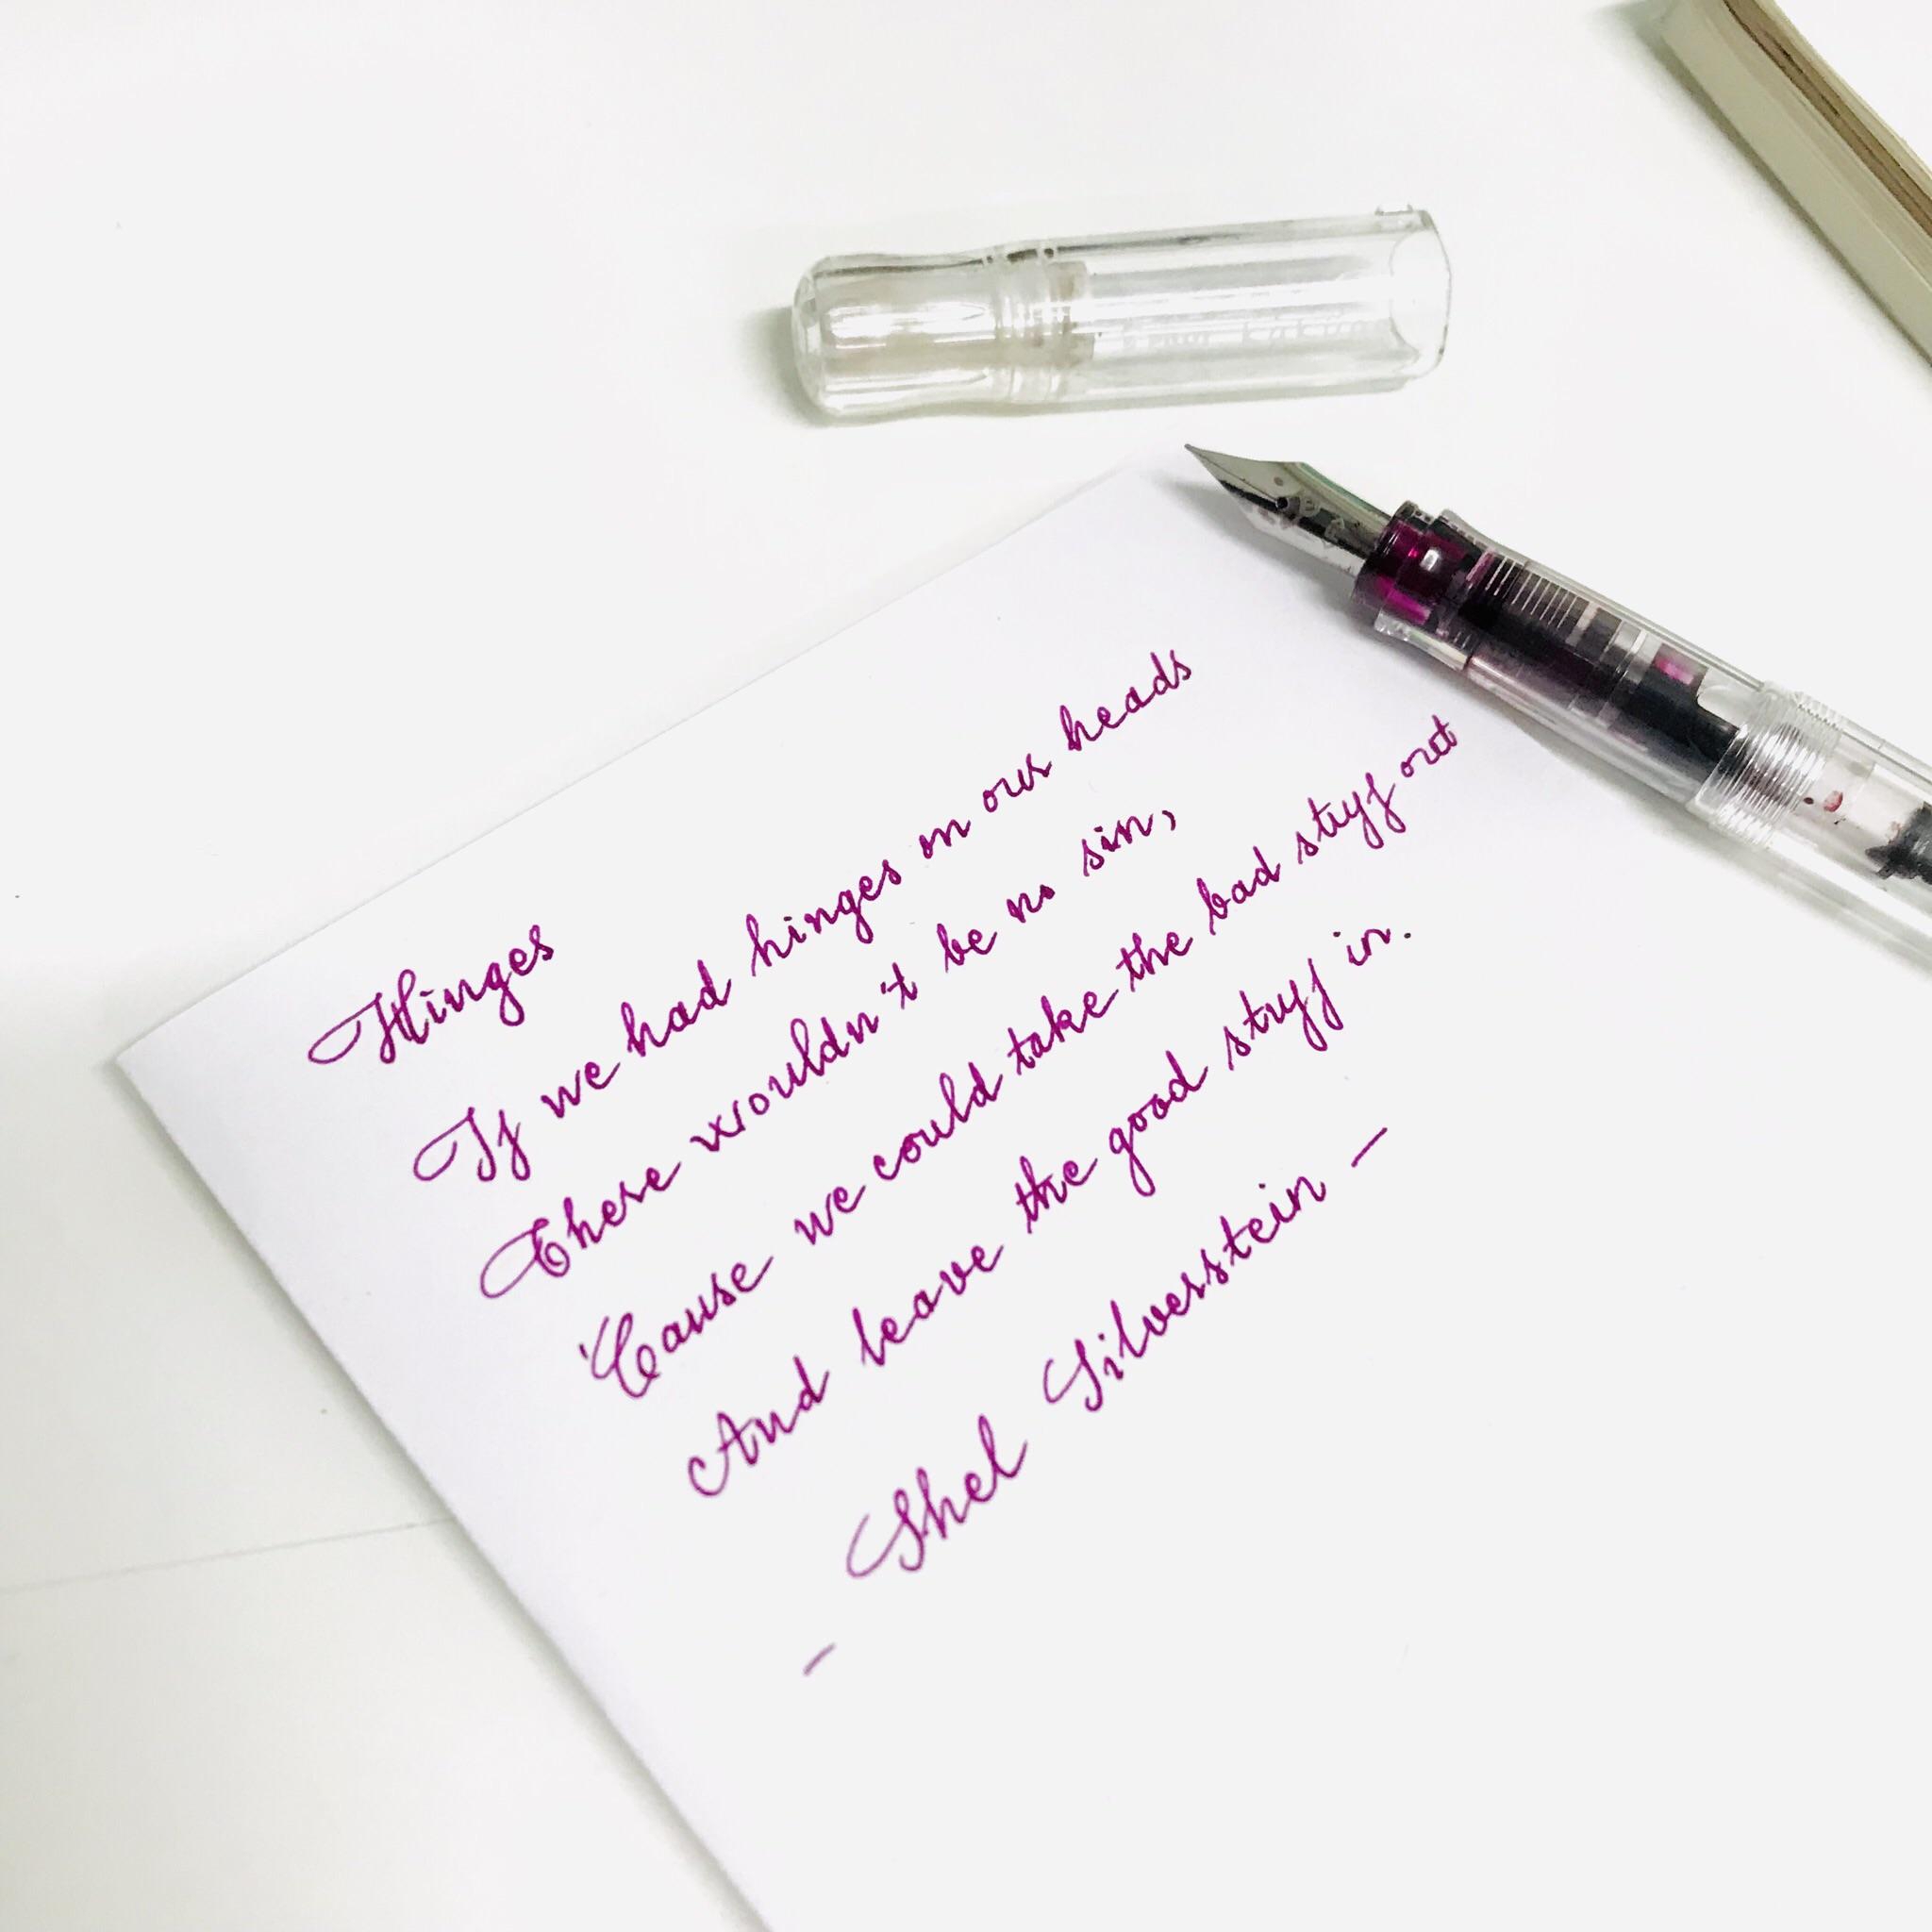 Hinges
If we had hinges on our heads
There wouldn't be no sin,
'Cause we could take the bad stuff out
And leave the good stuff in.
- Shel Silverstein -